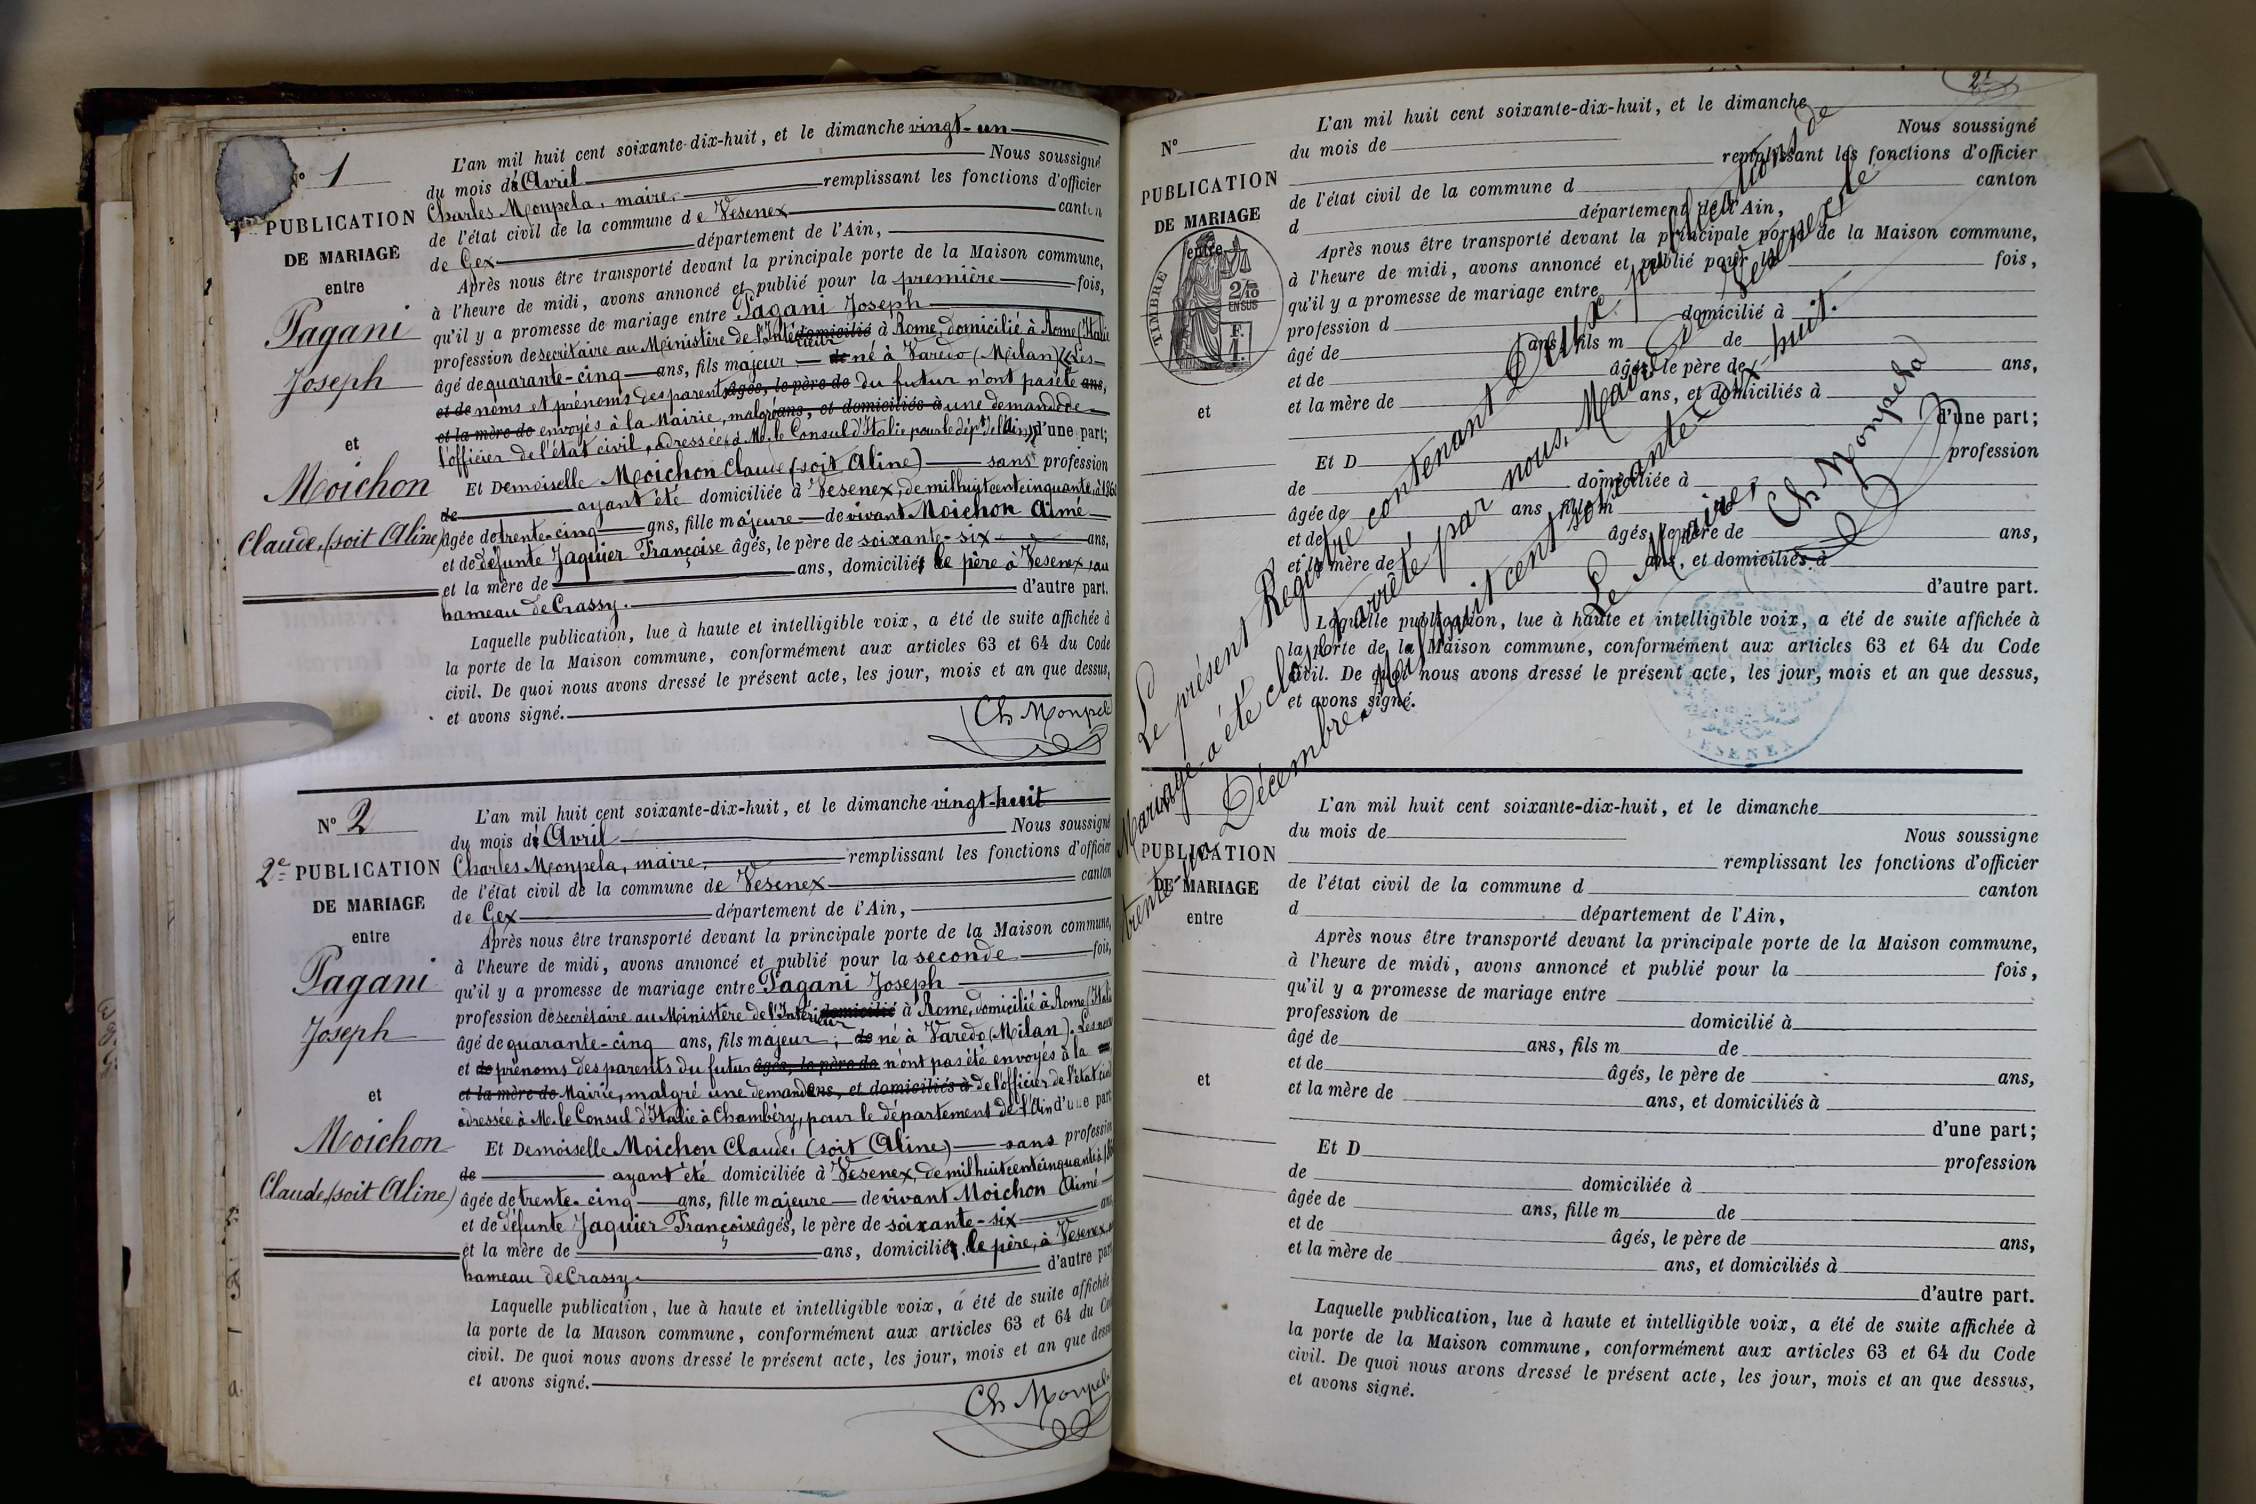 N° 1
PUBLICATION
DE MARIAGE
entre
Pagani
Joseph
et
Moichon
Claude, (soit Aline)
L'an mil huit cent soixante-dix-huit, et le dimanche vingt-un
du mois d'Avril Nous soussigné
Charles Monpela, maire, remplissant les fonctions d'officier
de l'état civil de la commune de Vesenex canton
de Gex département de l'Ain,
Après nous être transporté devant la principale porte de la Maison commune,
à l'heure de midi, avons annoncé et publié pour la première fois,
qu'il y a promesse de mariage entre Pagani Joseph
profession de secrétaire au Ministère de l'Intérieur domicilié à Rome, domicilié à Rome (Italie
âgé de quarante-cinq ans, fils majeur de né à Varedo (Milan) (Les
et de noms et prénoms des parents âgés, le père de du futur n'ont pas été ans,
et la mère de envoyés à la Mairie, malgré ans, et domiciliés à une demande de
l'officier de l'état civil, adressée à Mr. le Consul d'Italie pour le dépt. de l'Ain,) d'une part;
Et Demoiselle Moichon Claude (soit Aline) sans profession
de ayant été domiciliée à Vesenex, de mil huit cent cinquante, à 186
âgée de trente-cinq ans, fille majeure de vivant Moichon Aimé
et de défunte Jaquier Françoise âgés, le père de soixante-six ans,
et la mère de ans, domiciliés le père à Vesenex, au
hameau de Crassy. d'autre part.
Laquelle publication, lue à haute et intelligible voix, a été de suite affichée à
la porte de la Maison commune, conformément aux articles 63 et 64 du Code
civil. De quoi nous avons dressé le présent acte, les jour, mois et an que dessus,
et avons signé.
Ch Monpela
N° 2
2e PUBLICATION
DE MARIAGE
entre
Pagani
Joseph
et
Moichon
Claude, (soit Aline)
L'an mil huit cent soixante-dix-huit, et le dimanche vingt-huit
du mois d'Avril Nous soussigné
Charles Monpela, maire, remplissant les fonctions d'officier
de l'état civil de la commune de Vesenex canton
de Gex département de l'Ain,
Après nous être transporté devant la principale porte de la Maison commune,
à l'heure de midi, avons annoncé et publié pour la seconde fois,
qu'il y a promesse de mariage entre Pagani Joseph
profession de secrétaire au Ministère de l'Intérieur domicilié à Rome, domicilié à Rome (Itali
âgé de quarante-cinq ans, fils majeur, de né à Varedo (Milan). Les noms
et de prénoms des parents du futur âgés, le père de n'ont pas été envoyés à la
et la mère de Mairie, malgré une demande ans, et domiciliés à de l'officier de l'état civil
adressée à M. le Consul d'Italie à Chambéry, pour le département de l'Ain d'une part
Et Demoiselle Moichon Claude, (soit Aline) sans profession
de ayant été domiciliée à Vesenex, de mil huit cent cinquante à 186
âgée de trente-cinq ans, fille majeure de vivant Moichon Aimé
et de défunte Jaquier Françoise âgés, le père de soixante-six ans
et la mère de ans, domiciliés, le père, à Vesenex,
hameau de Crassy. d'autre part
Laquelle publication, lue à haute et intelligible voix, a été de suite affichée
la porte de la Maison commune, conformément aux articles 63 et 64 du Co
civil. De quoi nous avons dressé le présent acte, les jour, mois et an que dessu
et avons signé.
Ch Monpela
2e
N°
PUBLICATION
DE MARIAGE
entre
TIMBRE
2/10
EN SUS
F.
1.
et
L'an mil huit cent soixante-dix-huit, et le dimanche
du mois de Nous soussigné
remplissant les fonctions d'officier
de l'état civil de la commune d canton
d département de l'Ain,
Après nous être transporté devant la principale porte de la Maison commune,
à l'heure de midi, avons annoncé et publié pour la fois,
qu'il y a promesse de mariage entre
profession d domicilié à
âgé de ans, fils m de
et de âgés, le père de ans,
et la mère de ans, et domiciliés à
d'une part;
Et D profession
de domiciliée à
âgée de ans, fille m
et de âgés, le père de ans,
et la mère de ans, et domiciliés à
d'autre part.
Laquelle publication, lue à haute et intelligible voix, a été de suite affichée à
la porte de la Maison commune, conformément aux articles 63 et 64 du Code
civil. De quoi nous avons dressé le présent acte, les jour, mois et an que dessus,
et avons signé.
Le présent Registre contenant Deux publications de
Mariage a été clos et arrêté par nous, Maire de Vesenex, le
trente-un Décembre mil huit cent soixante-dix-huit.
Le Maire,
Ch Monpela
VESENEX
PUBLICATION
DE MARIAGE
entre
et
L'an mil huit cent soixante-dix-huit, et le dimanche
du mois de Nous soussigné
remplissant les fonctions d'officier
de l'état civil de la commune d canton
d département de l'Ain,
Après nous être transporté devant la principale porte de la Maison commune,
à l'heure de midi, avons annoncé et publié pour la fois,
qu'il y a promesse de mariage entre
profession de domicilié à
âgé de ans, fils m de
et de âgés, le père de ans,
et la mère de ans, et domiciliés à
d'une part;
Et D profession
de domiciliée à
âgée de ans, fille m de
et de âgés, le père de ans,
et la mère de ans, et domiciliés à
d'autre part.
Laquelle publication, lue à haute et intelligible voix, a été de suite affichée à
la porte de la Maison commune, conformément aux articles 63 et 64 du Code
civil. De quoi nous avons dressé le présent acte, les jour, mois et an que dessus,
et avons signé.